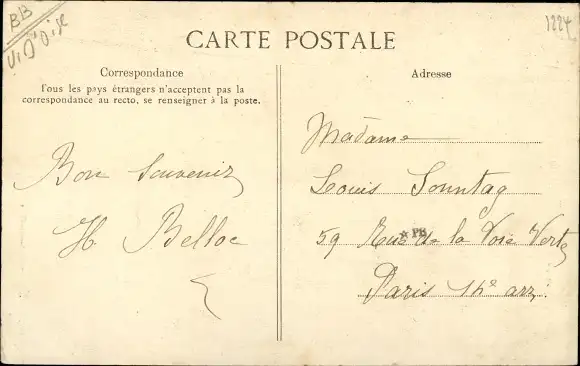 BB
Vl D'Oise
1224
CARTE POSTALE
Correspondance
Tous les pays étrangers n'acceptent pas la
correspondance au recto, se renseigner à la poste.
Bon souvenir
H Belloc
Adresse
Madame
Louis Sonntag
59 Rue de la Voie Verte
★PB
Paris 14e arr.